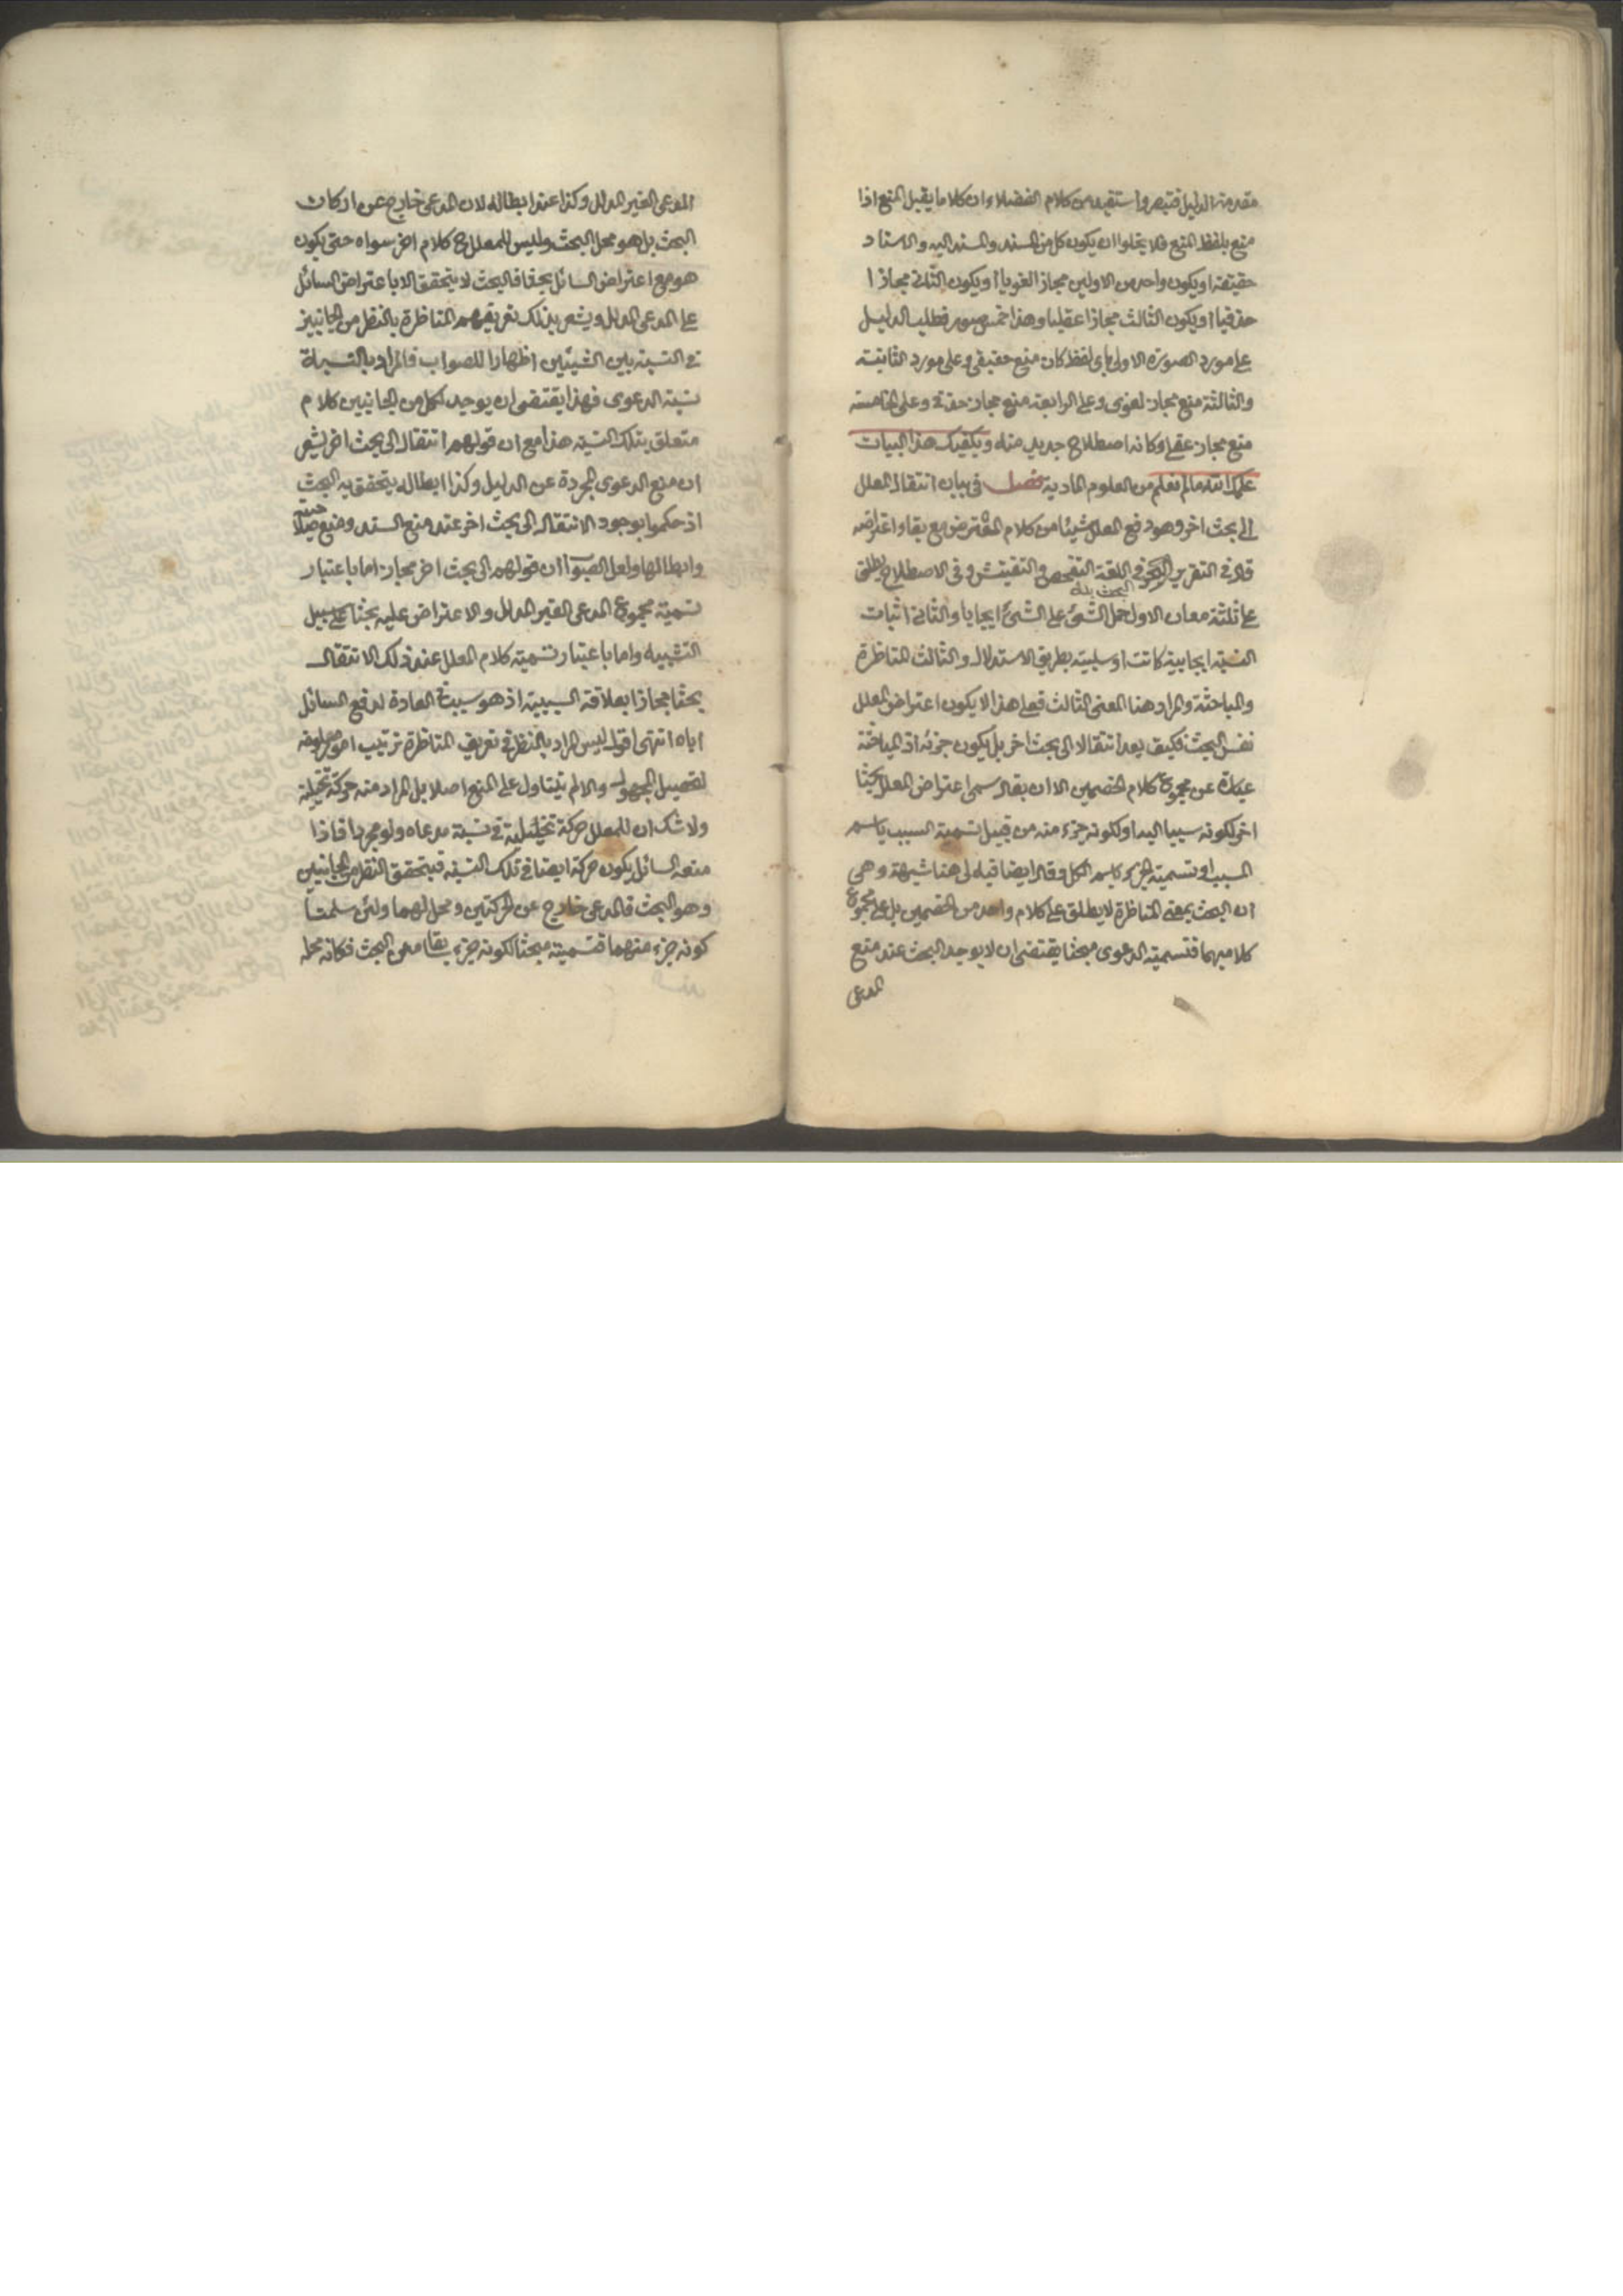 مقدمة الدليل فتبصر واستفيد من كلام الفضلاء ان كلاما يقبل المنع اذا
منع بلفظ المنع فلا يخلوا ان يكون كل من المسند والمسند اليه والاسناد
حقيقة او يكون واحد من الاولين مجازا لغويا او يكون الثاني مجازا
حذفيا او يكون الثالث مجازا عقليا وهذا خمس صور فطلب الدليل
على مورد الصورة الاولى باى لفظ كان منع حقيقى وعلى مورد الثانية
والثالثة منع مجاز لغوى وعلى الرابعة منع مجاز حذفى وعلى الخامسة
منع مجاز عقلى وكانه اصطلاح جديد منه ويكفيك هذا البيان
علمك الله مالم تعلم من العلوم المادية فصل فى بيان انتقال المعلل
الى بحث اخر وهو دفع المعلل شيئا من كلام المعترض مع بقاء اعتراضه
قال فى التقرير البحث فى اللغة التفحص والتفتيش وفى الاصطلاح يطلق
على ثلثة معان الاول حمل الشئ على الشئ ايجابا والثانى اثبات
النسبة ايجابية كانت او سلبية بطريق الاستدلال والثالث المناظرة
والمباحثة والمراد هنا المعنى الثالث فعلى هذا لا يكون اعتراض المعلل
نفس البحث فكيف يعد انتقالا الى بحث اخر بل يكون جزئه اذ المباحثة
عبارة عن مجموع كلام الخصمين الا ان يقال سمى اعتراض المعلل بحثا
اخر لكونه سببا اليه او لكونه جزء منه من قبيل تسمية السبب باسم
المسبب او تسمية الجزء باسم الكل وقال ايضا قيل لى هنا شبهة وهى
ان البحث بمعنى المناظرة لا يطلق على كلام واحد من الخصمين بل على مجموع
كلاميهما فتسمية الدعوى مبحثا يقتضى ان لا يوجد البحث عند منع
المدعى
المدعى الغير المدلل وكذا عند ابطاله لان المدعى خارج عن اركان
البحث بل هو محل البحث وليس للمعلل ح كلام اخر سواه حتى يكون
هو مع اعتراض السائل بحثا فالبحث لا يتحقق الا باعتراض السائل
على المدعى المدلل ويشعر بذلك تعريفهم المناظرة بالنظر من الجانبين
فى النسبة بين الشيئين اظهارا للصواب فالمراد بالنسبة
نسبة الدعوى فهذا يقتضى ان يوجد لكل من الجانبين كلام
متعلق بتلك النسبة هذا مع ان قولهم انتقال الى بحث اخر يشعر
ان منع الدعوى المجردة عن الدليل وكذا ابطاله يتحقق به البحث
اذ حكموا بوجود الانتقال الى بحث اخر عند منع السند
وابطالها ولعل الصواب ان قولهم الى بحث اخر مجاز اما باعتبار
تسمية مجموع المدعى الغير المدلل والاعتراض عليه بحثا على سبيل
التشبيه واما باعتبار تسمية كلام المعلل عند ذلك الانتقال
بحثا مجازا بعلاقة السببية اذ هو سبب فى العادة لدفع السائل
اياه انتهى اقول ليس المراد بالنظر فى تعريف المناظرة ترتيب امور معلومة
لتحصيل المجهول والا لم يتناول على المنع اصلا بل المراد منه حركة تخيلية
ولا شك ان للمعلل حركة تخيلية فى نسبة مدعاه ولو مجردا فاذا
منعه السائل يكون حركة ايضا فى تلك النسبة فيتحقق النظر من الجانبين
وهو البحث فالمدعى خارج عن الحركتين ومحل لهما ولئن سلمنا
كونه جزء منهما فتسميته مبحثا لكونه جزء بقا معنى البحث فكانه محله